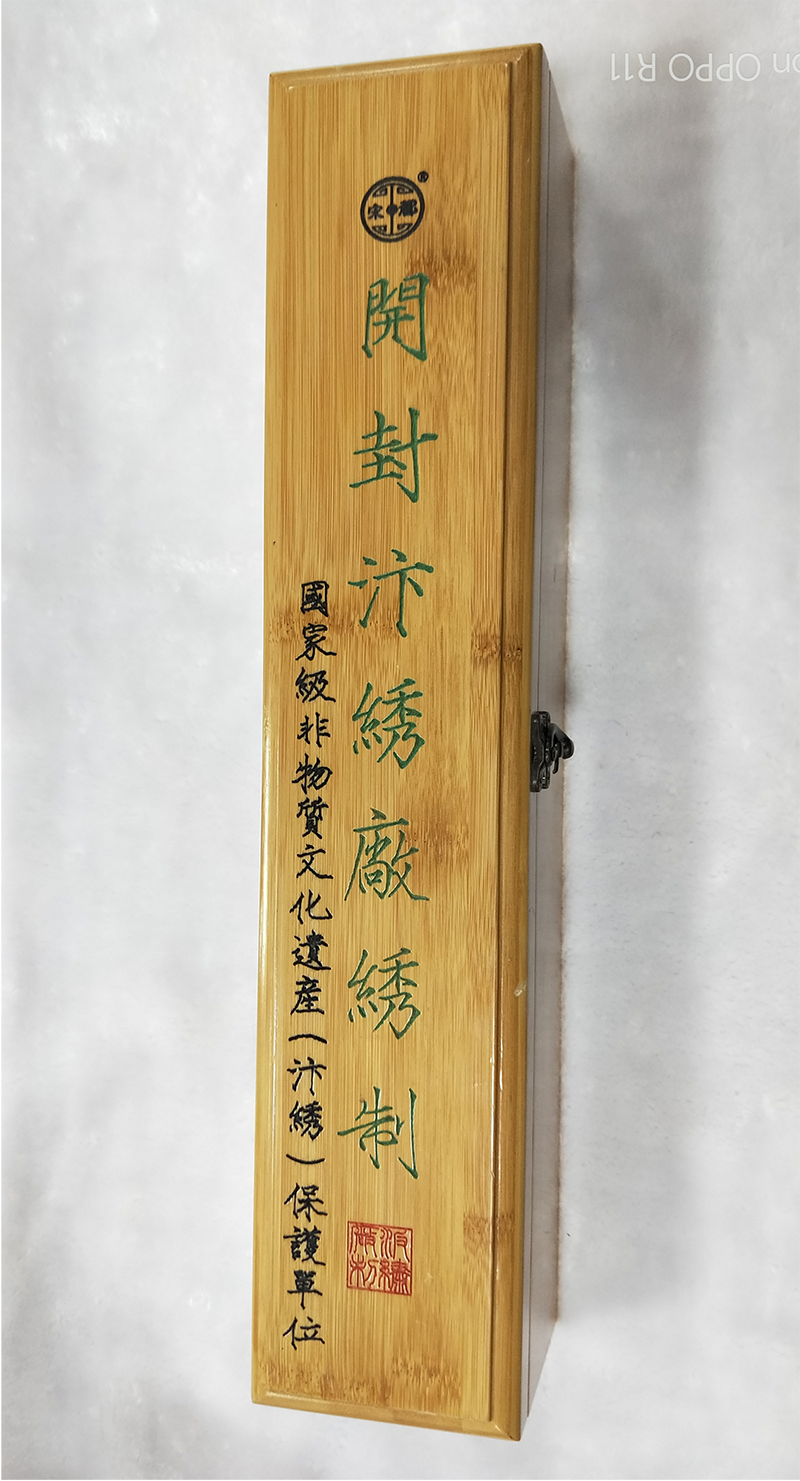 宋都
®
開封汴綉廠綉制
國家級非物質文化遺産(汴綉)保護單位
on OPPO R11